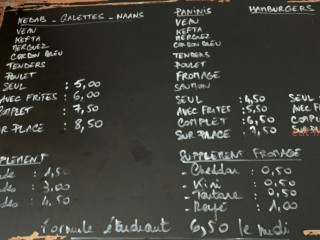 KEBAB - GALETTES - NAANS
VEAU
KEFTA
MERGUEZ
CORDON BLEU
TENDERS
POULET
SEUL : 5,00
AVEC FRITES : 6,00
COMPLET : 7,50
SUR PLACE : 8,50
PANINIS
VEAU
KEFTA
MERGUEZ
CORDON BLEU
TENDERS
POULET
FROMAGE
SAUMON
SEUL : 4,50
AVEC FRITES : 5,50
COMPLET : 6,50
SUR PLACE : 7,50
HAMBURGERS
SEUL
SUPPLEMENT
: 1,50
: 3,00
: 1,50
SUPPLEMENT FROMAGE
- Cheddar : 0,50
- Kiri : 0,50
- Tartare : 0,50
- Rapé : 1,00
Formule étudiant 6,50 le midi